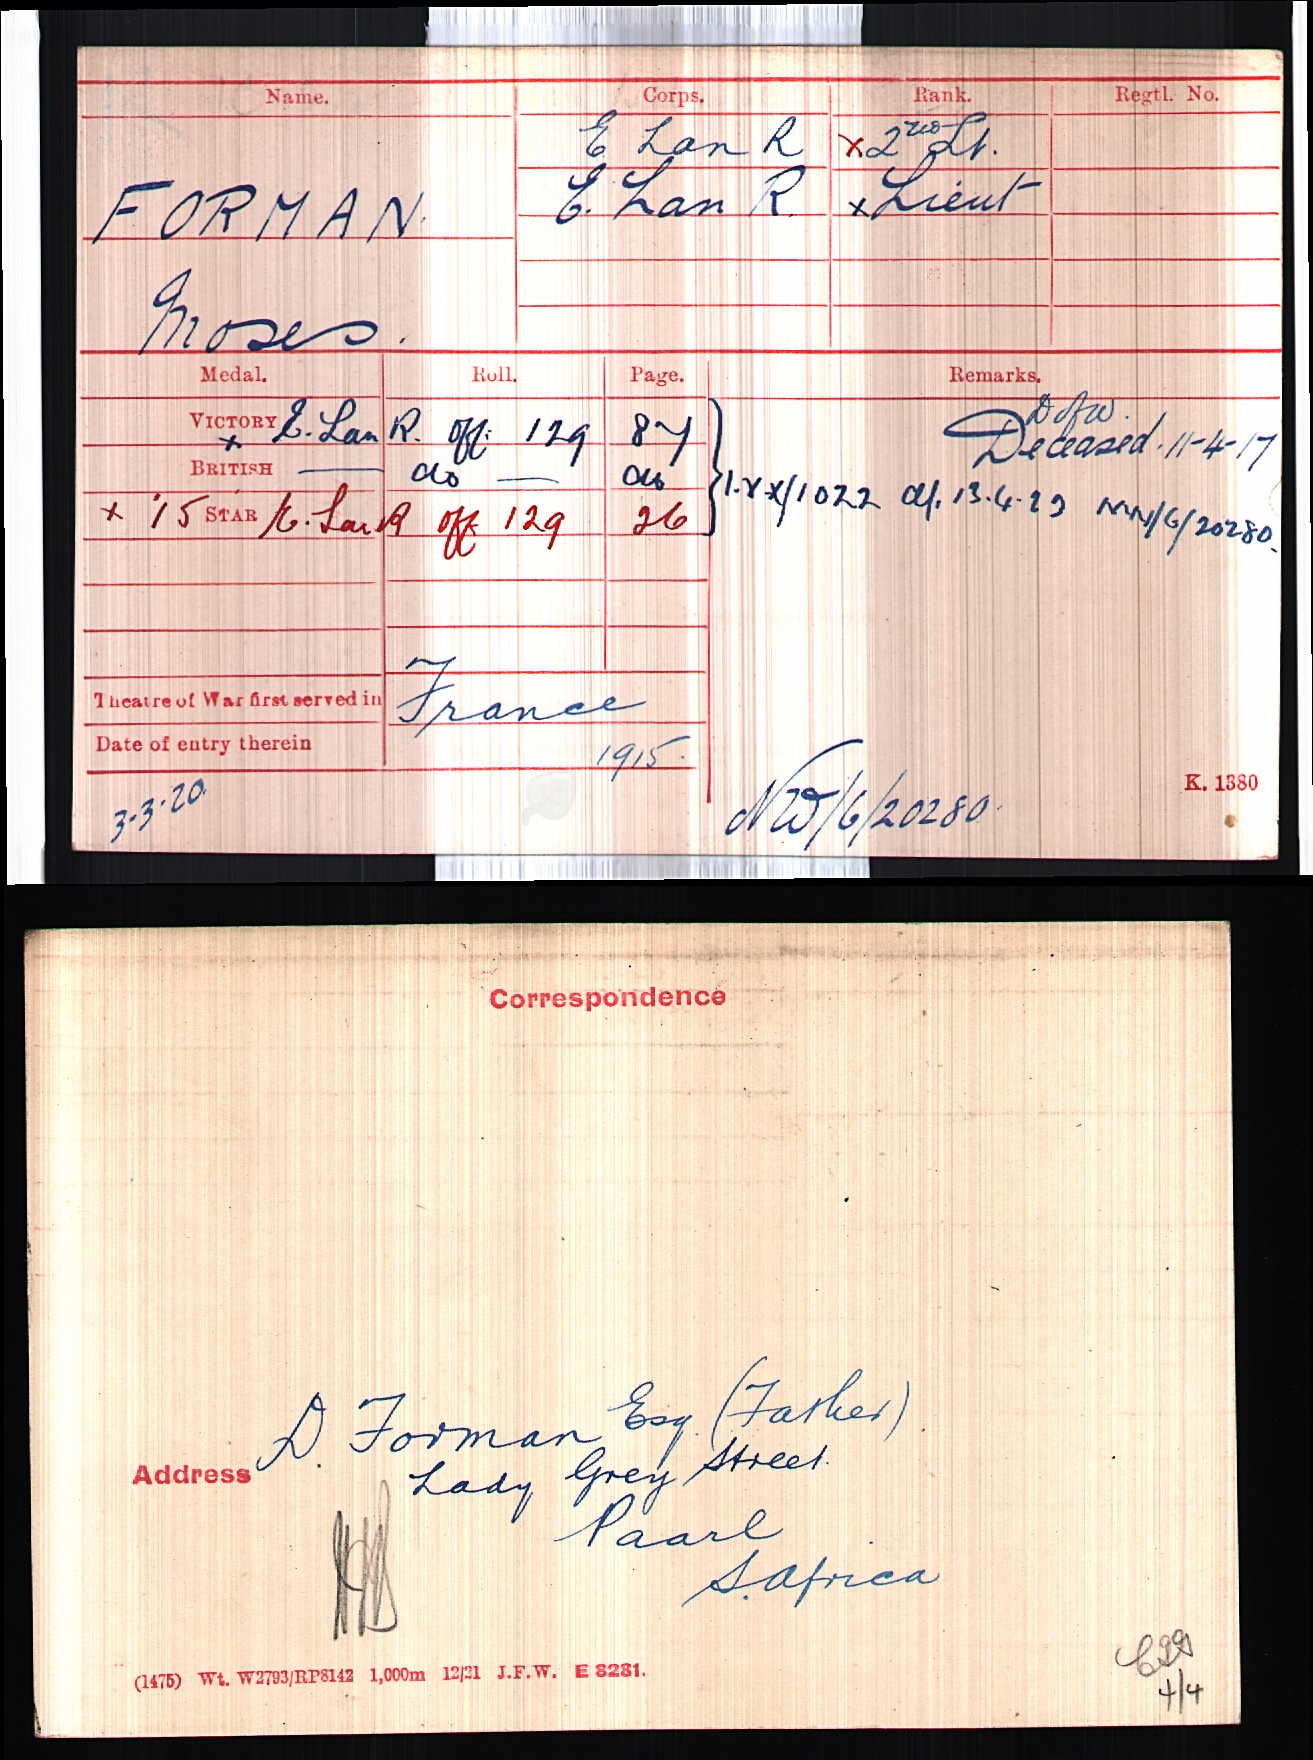 Name. Corps. Rank. Regtl. No.
E Lan R x 2nd Lt.
FORMAN. E. Lan R. x Lieut
Moses.
Medal. Roll. Page. Remarks.
VICTORY x E. Lan R. off: 129 87 D of W.
Deceased. 11-4-17
BRITISH do do
x '15 STAR E. Lan R off 129 26
13.4.23 /6/20280.
Theatre of War first served in France
Date of entry therein 1915.
3-3-20.
NW/6/20280.
K. 1380
Correspondence
D. Forman Esq. (Father)
Address
Lady Grey Street.
Paarl
S. Africa
(1475) Wt. W2793/RP8142 1,000m 12/21 J.F.W. E 8281.
4/4